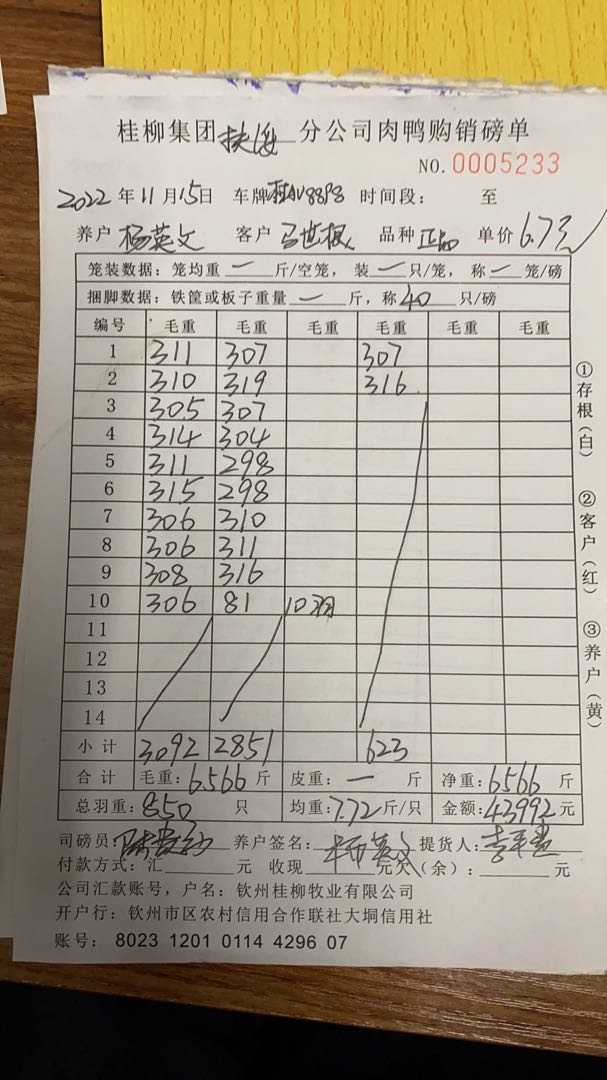 桂柳集团 分公司肉鸭购销磅单
NO. 0005233
2022年11月15日 车牌 时间段： 至
养户 杨英文 客户 马世根 品种 正品 单价 6.7元
笼装数据：笼均重 一 斤/空笼，装 一 只/笼，称 一 笼/磅
捆脚数据：铁筐或板子重量 一 斤，称 40 只/磅
编号 毛重 毛重 毛重 毛重 毛重 毛重
1 311 307 307
2 310 319 316
3 305 307
4 314 304
5 311 298
6 315 298
7 306 310
8 306 311
9 308 316
10 306 81 10羽
11
12
13
14
小计 3092 2851 623
合计 毛重：6566 斤 皮重：一 斤 净重：6566 斤
总羽重：850 只 均重：7.72 斤/只 金额：43992 元
司磅员： 养户签名：杨英文 提货人：
付款方式：汇 元 收现 元欠（余）： 元
公司汇款账号，户名：钦州桂柳牧业有限公司
开户行：钦州市区农村信用合作联社大垌信用社
账号：8023 1201 0114 4296 07
①存根（白）
②客户（红）
③养户（黄）